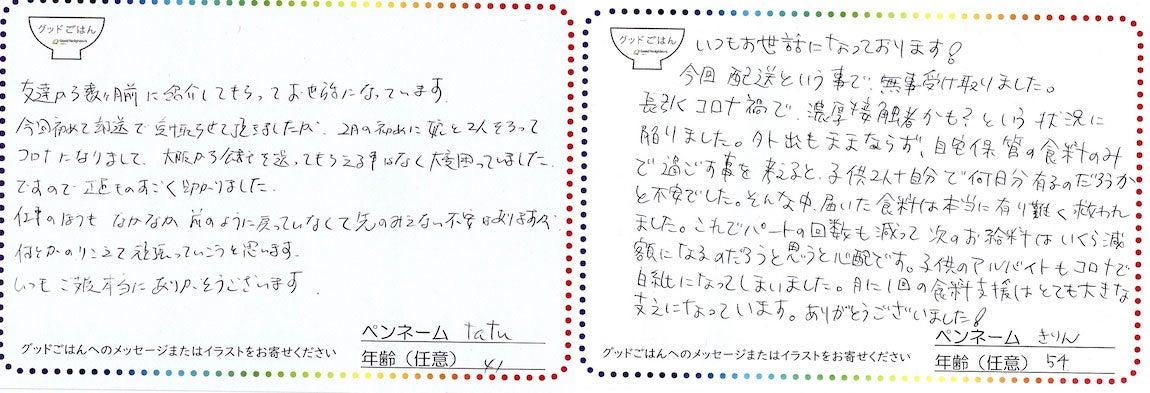 グッドごはん
Good Neighbors
友達から数ヶ月前に紹介してもらってお世話になっています。
今回初めて郵送で受取らせて頂きましたが、2月の初めに娘と2人そろって
コロナになりまして、大阪から食を送ってもらえる事はなく大変困っていました。
ですので正直ものすごく助かりました。
仕事のほうも なかなか 前のように戻っていなくて先のみえない不安はありますが
何とかのりこえて頑張っていこうと思います。
いつもご支援本当にありがとうございます。
ペンネーム tatu
グッドごはんへのメッセージまたはイラストをお寄せください
年齢（任意） 41
グッドごはん
Good Neighbors
いつもお世話になっております!
今回 配送という事で、無事受け取りました。
長引くコロナ禍で、濃厚接触者かも?という状況に
陥りました。外出もままならず、自宅保管の食料のみ
で過ごす事を考えると、子供2人+自分で何日分有るのだろうか
と不安でした。そんな中、届いた食料は本当に有り難く救われ
ました。これでパートの回数も減って次のお給料はいくら減
額になるのだろうと思うと心配です。子供のアルバイトもコロナで
白紙になってしまいました。月に1回の食料支援はとても大きな
支えになっています。ありがとうございました!
ペンネーム きりん
グッドごはんへのメッセージまたはイラストをお寄せください
年齢（任意） 54